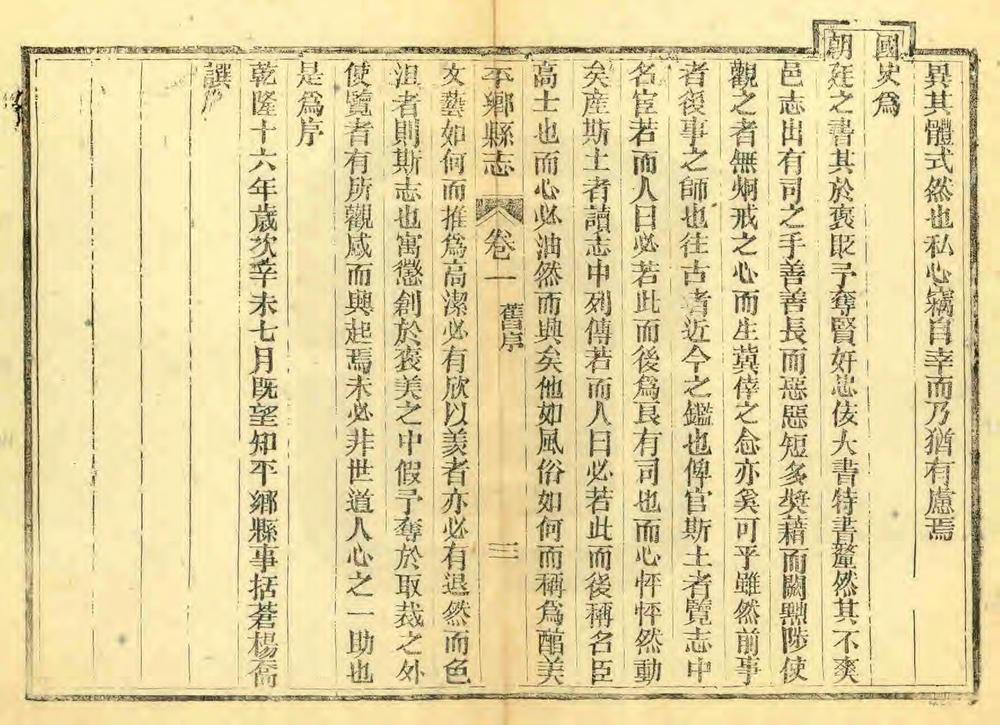 異其體式然也私心竊自幸而乃猶有慮焉
國史爲
朝廷之書其於褒貶予奪賢奸忠佞大書特書釐然其不爽
邑志出有司之手善善長而惡惡短多奬藉而闕黜陟使
觀之者無炯戒之心而生冀倖之念亦奚可乎雖然前事
者後事之師也往古者近今之鑑也俾官斯土者覽志中
名宦若而人曰必若此而後爲良有司也而心怦怦然動
矣産斯土者讀志中列傳若而人曰必若此而後稱名臣
高士也而心必油然而興矣他如風俗如何而稱爲醇美
平鄉縣志 卷一 舊序 三
文藝如何而推爲高潔必有欣以羨者亦必有退然而色
沮者則斯志也寓懲創於褒美之中假予奪於取裁之外
使覽者有所觀感而興起焉未必非世道人心之一助也
是爲序
乾隆十六年歲次辛未七月既望知平鄉縣事括蒼楊喬
譔